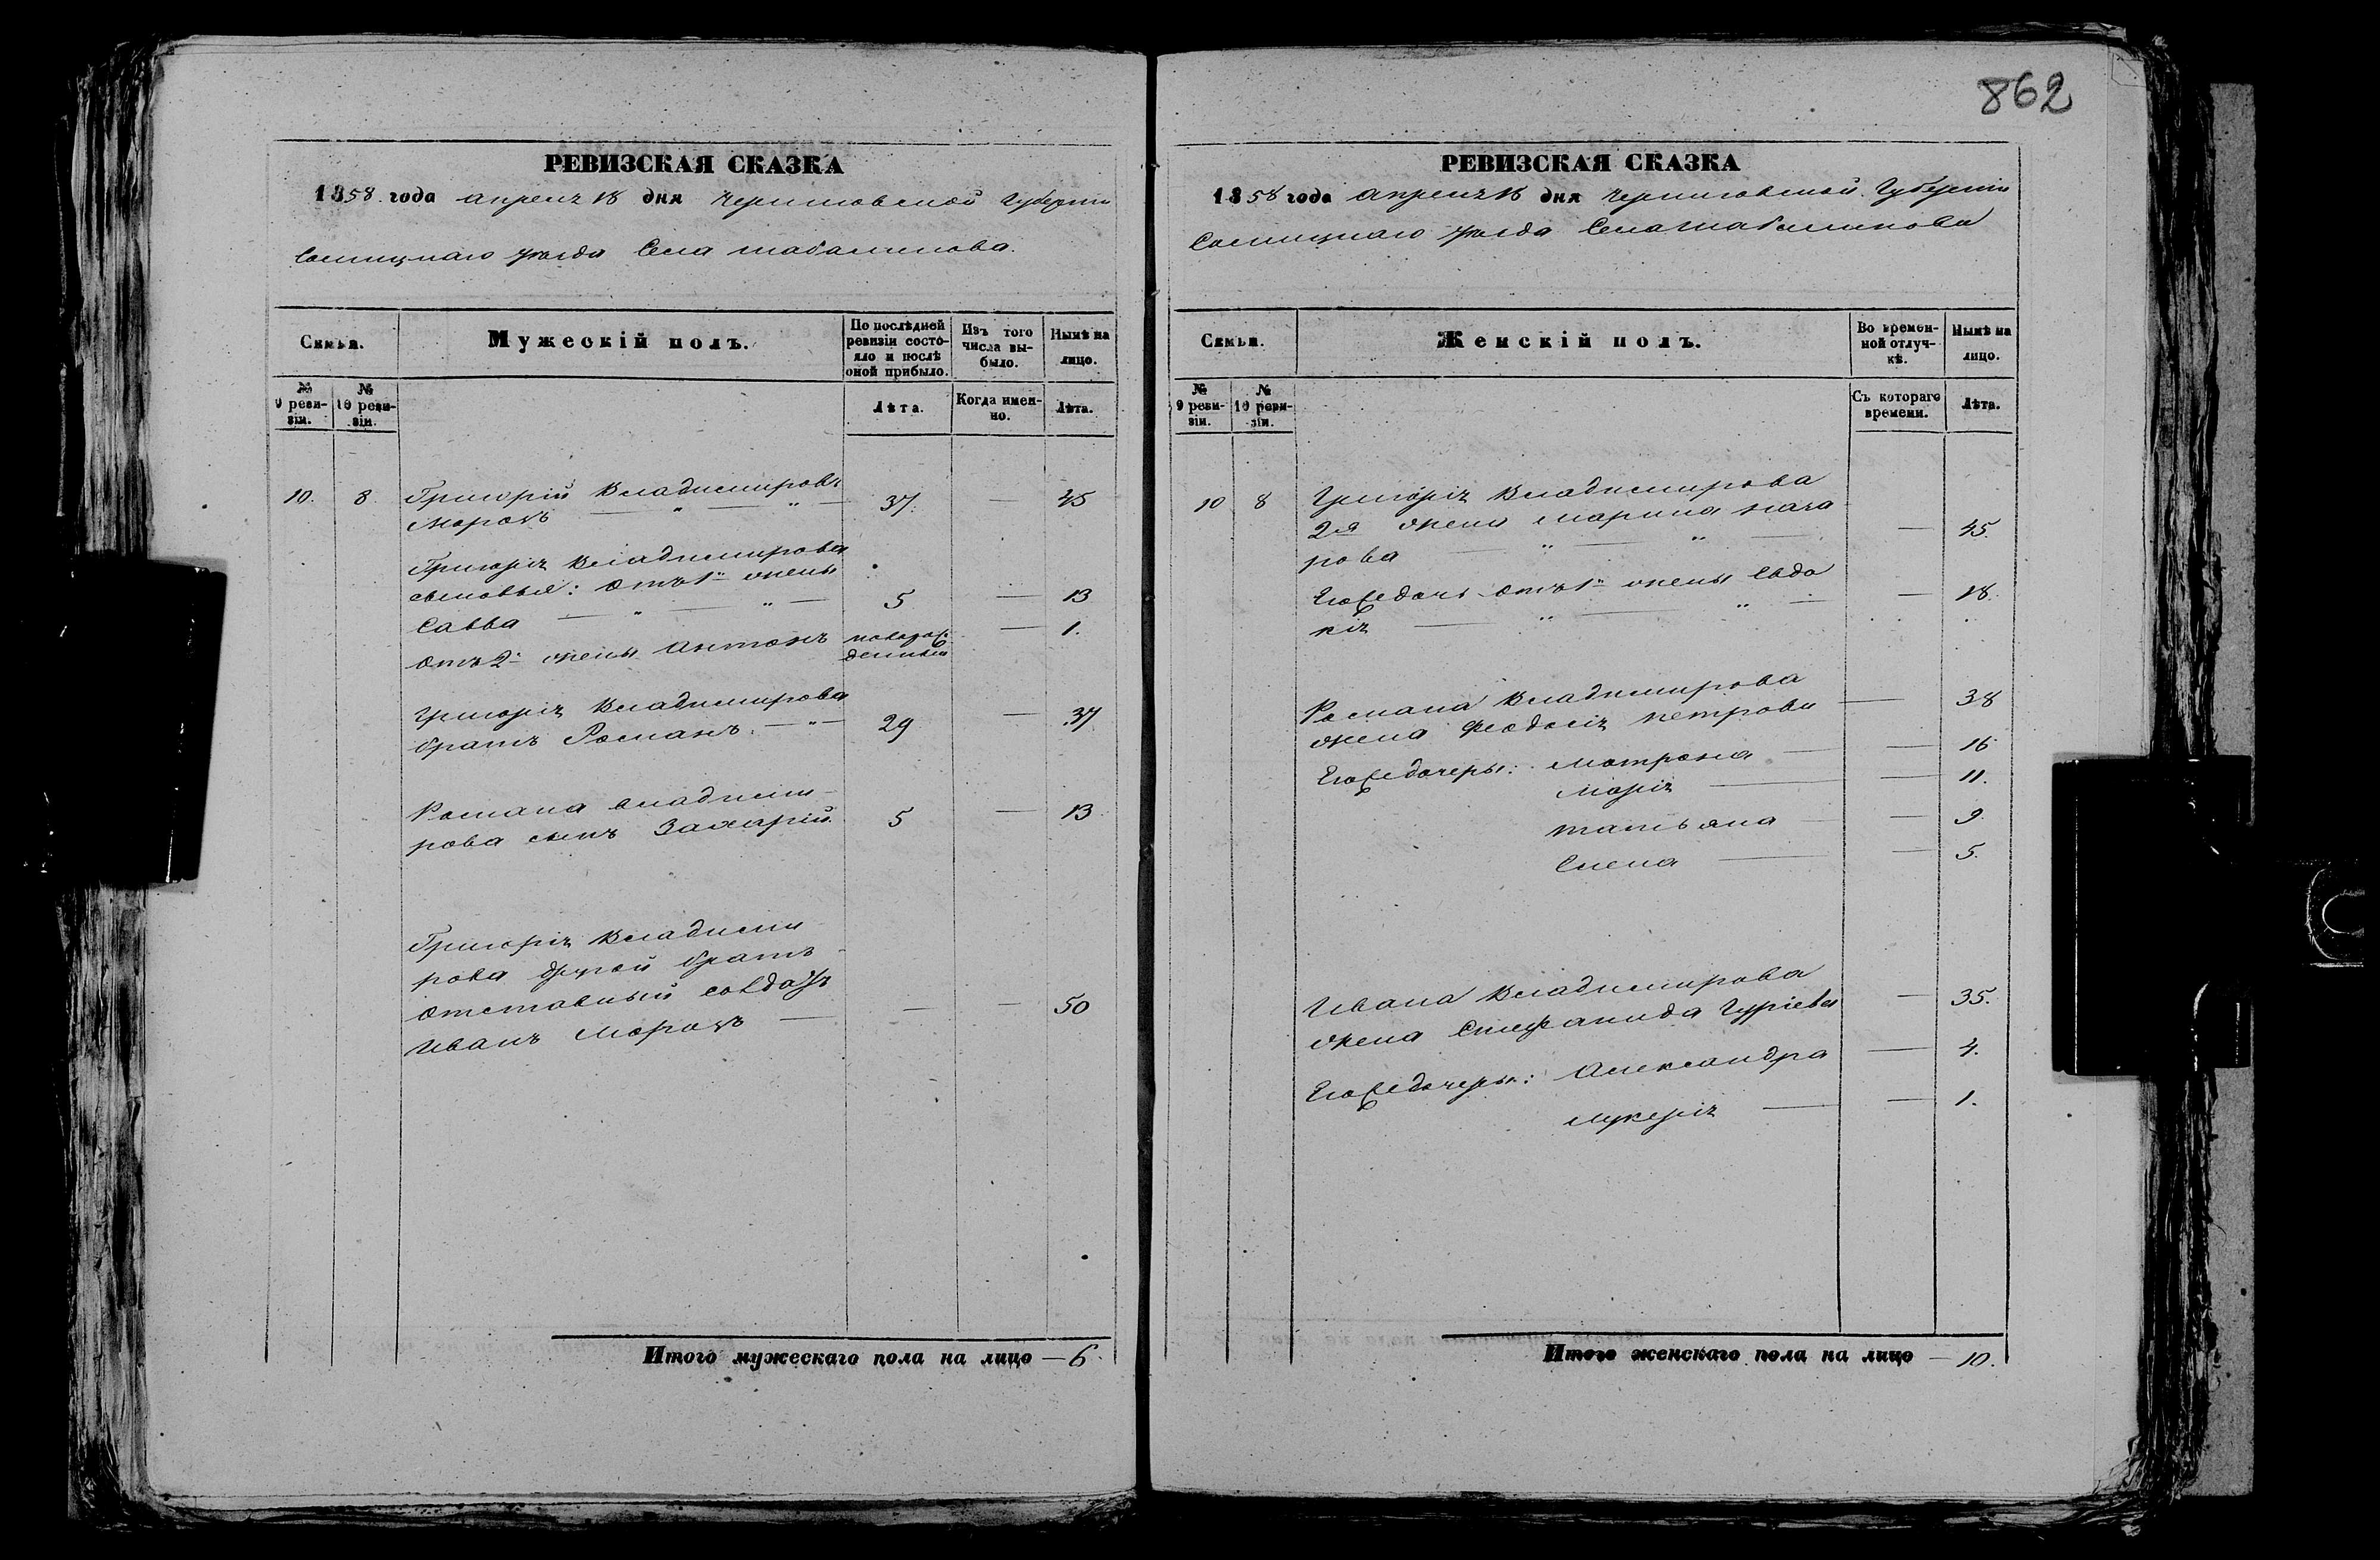 862
РЕВИЗСКАЯ СКАЗКА
1858 года апреля 18 дня Черниговской Губернии
Сосницкаго уезда Села Шабалинова.
Семьи.
Мужескій полъ.
По послѣдней
ревизіи состо-
яло и послѣ
оной прибыло.
Изъ того
числа вы-
было.
Нынѣ на
лицо.
№
9 реви-
зіи.
№
10 реви-
зіи.
Лѣта.
Когда имен-
но.
Лѣта.
10. 8. Григорій Владимировъ
Морозъ — " — " — 37. — 45
Григорія Владимирова
сыновья: отъ 1й жены
Савва — " — " — 5 — 13
отъ 2й жены Антонъ новорож
денный — 1.
Григорія Владимирова
братъ Романъ. — " — 29 — 37
Романа Владими-
рова сынъ Захарій. 5 — 13
Григорія Владими
рова другой братъ
отставный солдатъ
Иванъ Морозъ — — — 50
Итого мужескаго пола на лицо — 6.
РЕВИЗСКАЯ СКАЗКА
1858 года апреля 18 дня Черниговской Губерніи
Сосницкаго уезда Села Шабалинова
Семьи.
Женскій полъ.
Во времен-
ной отлуч-
кѣ.
Нынѣ на
лицо.
№
9 реви-
зіи.
№
10 реви-
зіи.
Съ котораго
времени.
Лѣта.
10 8 Григорія Владимирова
2я жена Марина
рова — " — " — — 45.
Егожедочь отъ 1й жены Евдо
кія — " — " — — 18.
Романа Владимирова
жена Феодосія Петрова — — 38
Егожедочеры: Матрона — — 16
Марія — — 11.
Татьяна — — 9.
Елена — — 5.
Ивана Владимирова
жена Стефанида Гуріева — 35.
Егожедочеры: Александра — 4.
Лукерія — — 1.
Итого женскаго пола на лицо — 10.